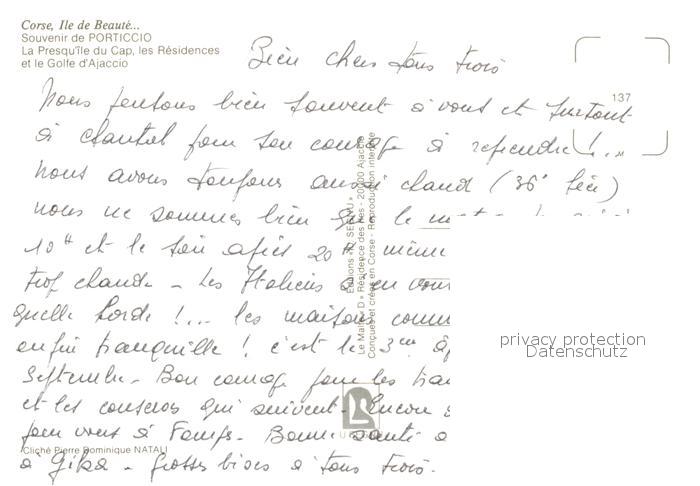 Corse, Ile de Beauté...
Souvenir de PORTICCIO
La Presqu'île du Cap, les Résidences
et le Golfe d'Ajaccio
Bien chers tous trois
137
Nous pensons bien souvent à vous et surtout
à Chantal pour son courage à reprendre !...
Nous avons toujours aussi chaud (36° hier)
nous ne sommes bien que le
10H et le soir après 20H même
trop chaude - Les Italiens
quelle horde !... les maisons
enfin tranquille ! c'est le 3em
Septembre. Bon courage pour les
et les conseros qui suivent. Encore
pour vous à Bonne santé
à Gika - grosses bises à tous trois.
Editions
Le Maltese D » Résidence des Iles - 20000 Ajaccio
Conçues et créées en Corse - Reproduction interdite
Cliché Pierre Dominique NATALI
privacy protection
Datenschutz